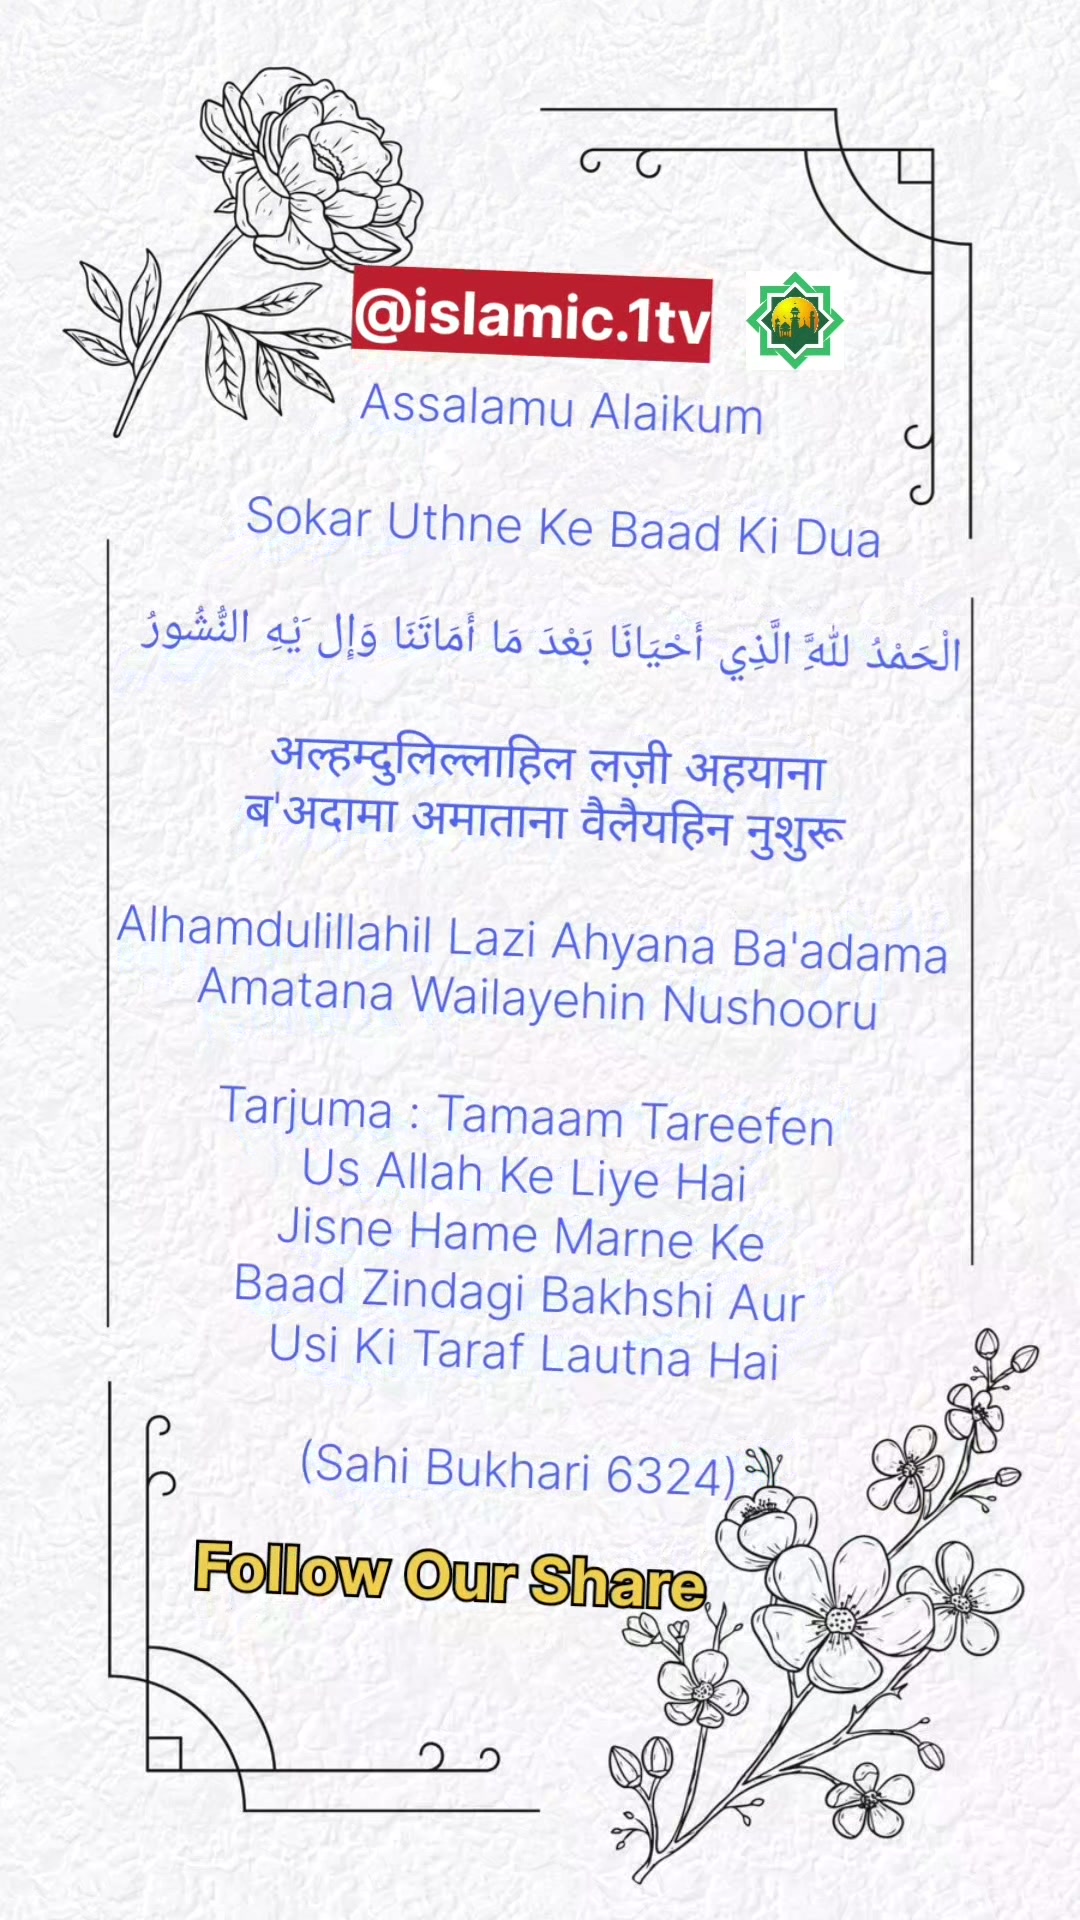 @islamic.1tv
Assalamu Alaikum
Sokar Uthne Ke Baad Ki Dua
الْحَمْدُ للهِ الَّذِي أَحْيَانَا بَعْدَ مَا أَمَاتَنَا وَإِل َيْهِ النُّشُورُ
अल्हम्दुलिल्लाहिल लज़ी अहयाना
ब'अदामा अमाताना वैलैयहिन नुशुरू
Alhamdulillahil Lazi Ahyana Ba'adama
Amatana Wailayehin Nushooru
Tarjuma : Tamaam Tareefen
Us Allah Ke Liye Hai
Jisne Hame Marne Ke
Baad Zindagi Bakhshi Aur
Usi Ki Taraf Lautna Hai
(Sahi Bukhari 6324)
Follow Our Share